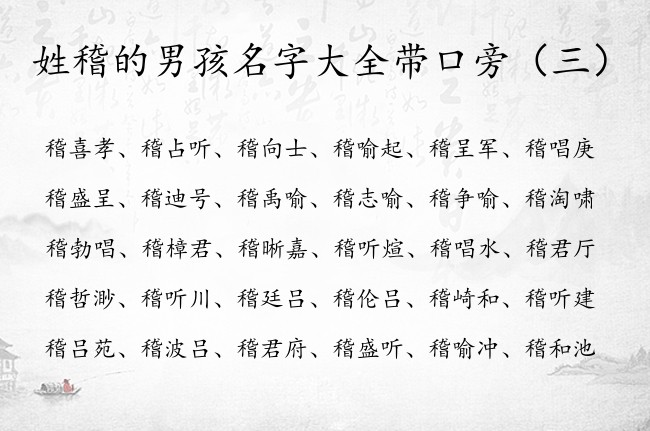 姓稽的男孩名字大全带口旁（三）
稽喜孝、稽占听、稽向士、稽喻起、稽呈军、稽唱庚
稽盛呈、稽迪号、稽禹喻、稽志喻、稽争喻、稽淘啸
稽勃唱、稽樟君、稽晰嘉、稽听煊、稽唱水、稽君厅
稽哲渺、稽听川、稽廷吕、稽伦吕、稽崎和、稽听建
稽吕苑、稽波吕、稽君府、稽盛听、稽喻冲、稽和池